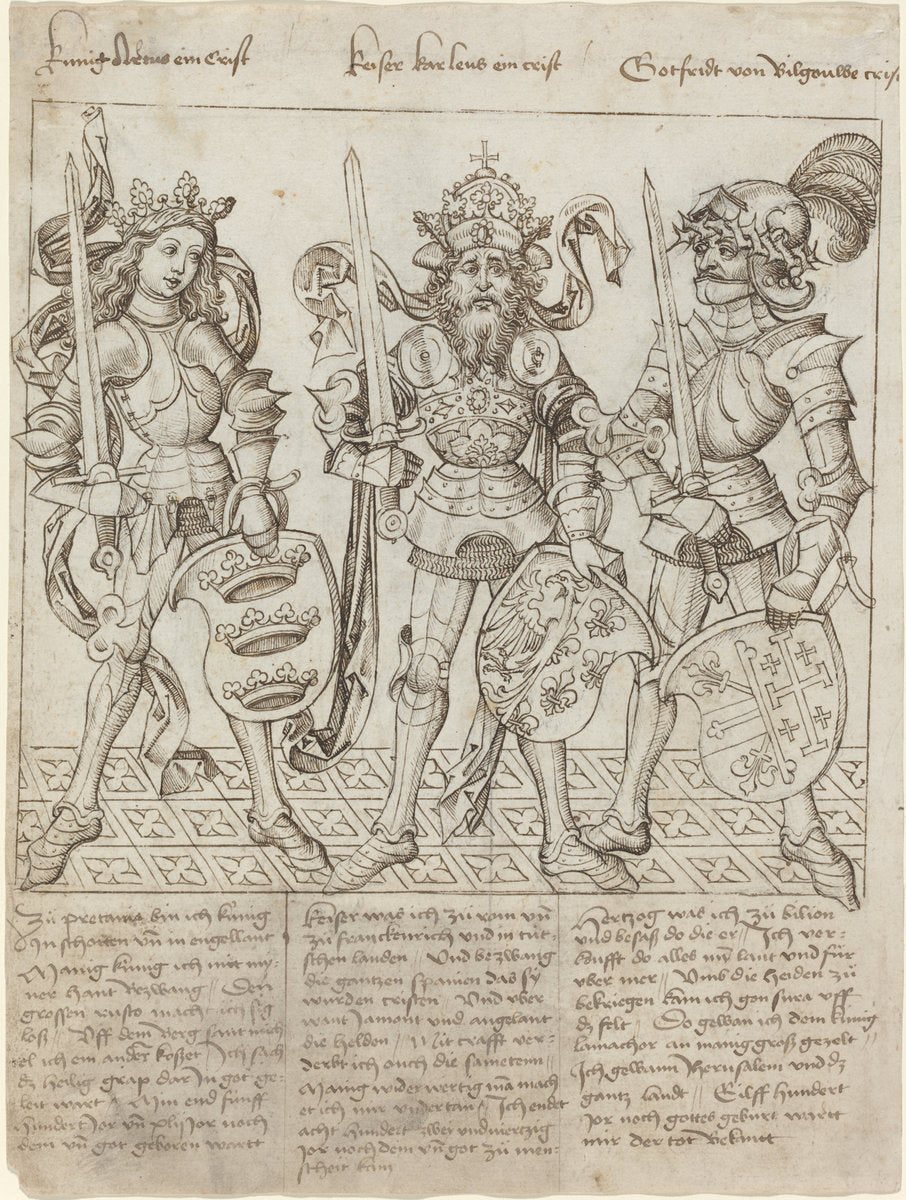 Kunig Artus ein Crist
Keiser karleus ein crist
Gotfridt von Bilgouwe crist
Zu pretania bin ich kunig
In schotten vn in engellant
Manig kunig ich mit my-
ner hant Bezwang // Den
grossen rusto macht ich sig
loß // Vff dem berg sant mich
el ich ein andern Ich sach
dz heilig grap dar In got ge-
leit wart // Min end funff
hundert Jor vn Jor noch
dem vn got geboren wartt
Keiser was ich zu rom vn
zu franckenrich und in tüt-
schen landen // Und bezwang
die gantzen spanien das sy
wurden cristen Und vber
want Jamont und angelant
die helden // Mit crafft ver-
derbt ich ouch die //
Manig wider wertig ma mach
et ich mir vndertan // Ich endet
acht hundert zwei und viertzig
Jor noch dem vn got zu men-
scheit kam
Hertzog was ich zu bilion
und besaß do die er // Ich ver-
koufft do alles min lant und für
vber mer // Vmb die heiden zu
bekriegen kam ich gon sura vff
dz felt // Do gewan ich dem kunig
lamachor an manig groß gezelt //
Ich gewann Jherusalem und dz
gantz landt // Eilff hundert
Jor noch gottes geburt wartt
mir der tot Bekant